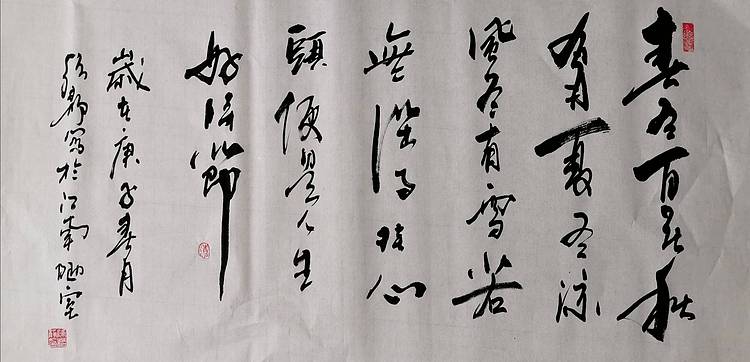 春有百花秋
有月夏有涼
風冬有雪若
無事挂心
頭便是人生
好時節
歲在庚子春月
寫於江南陋室